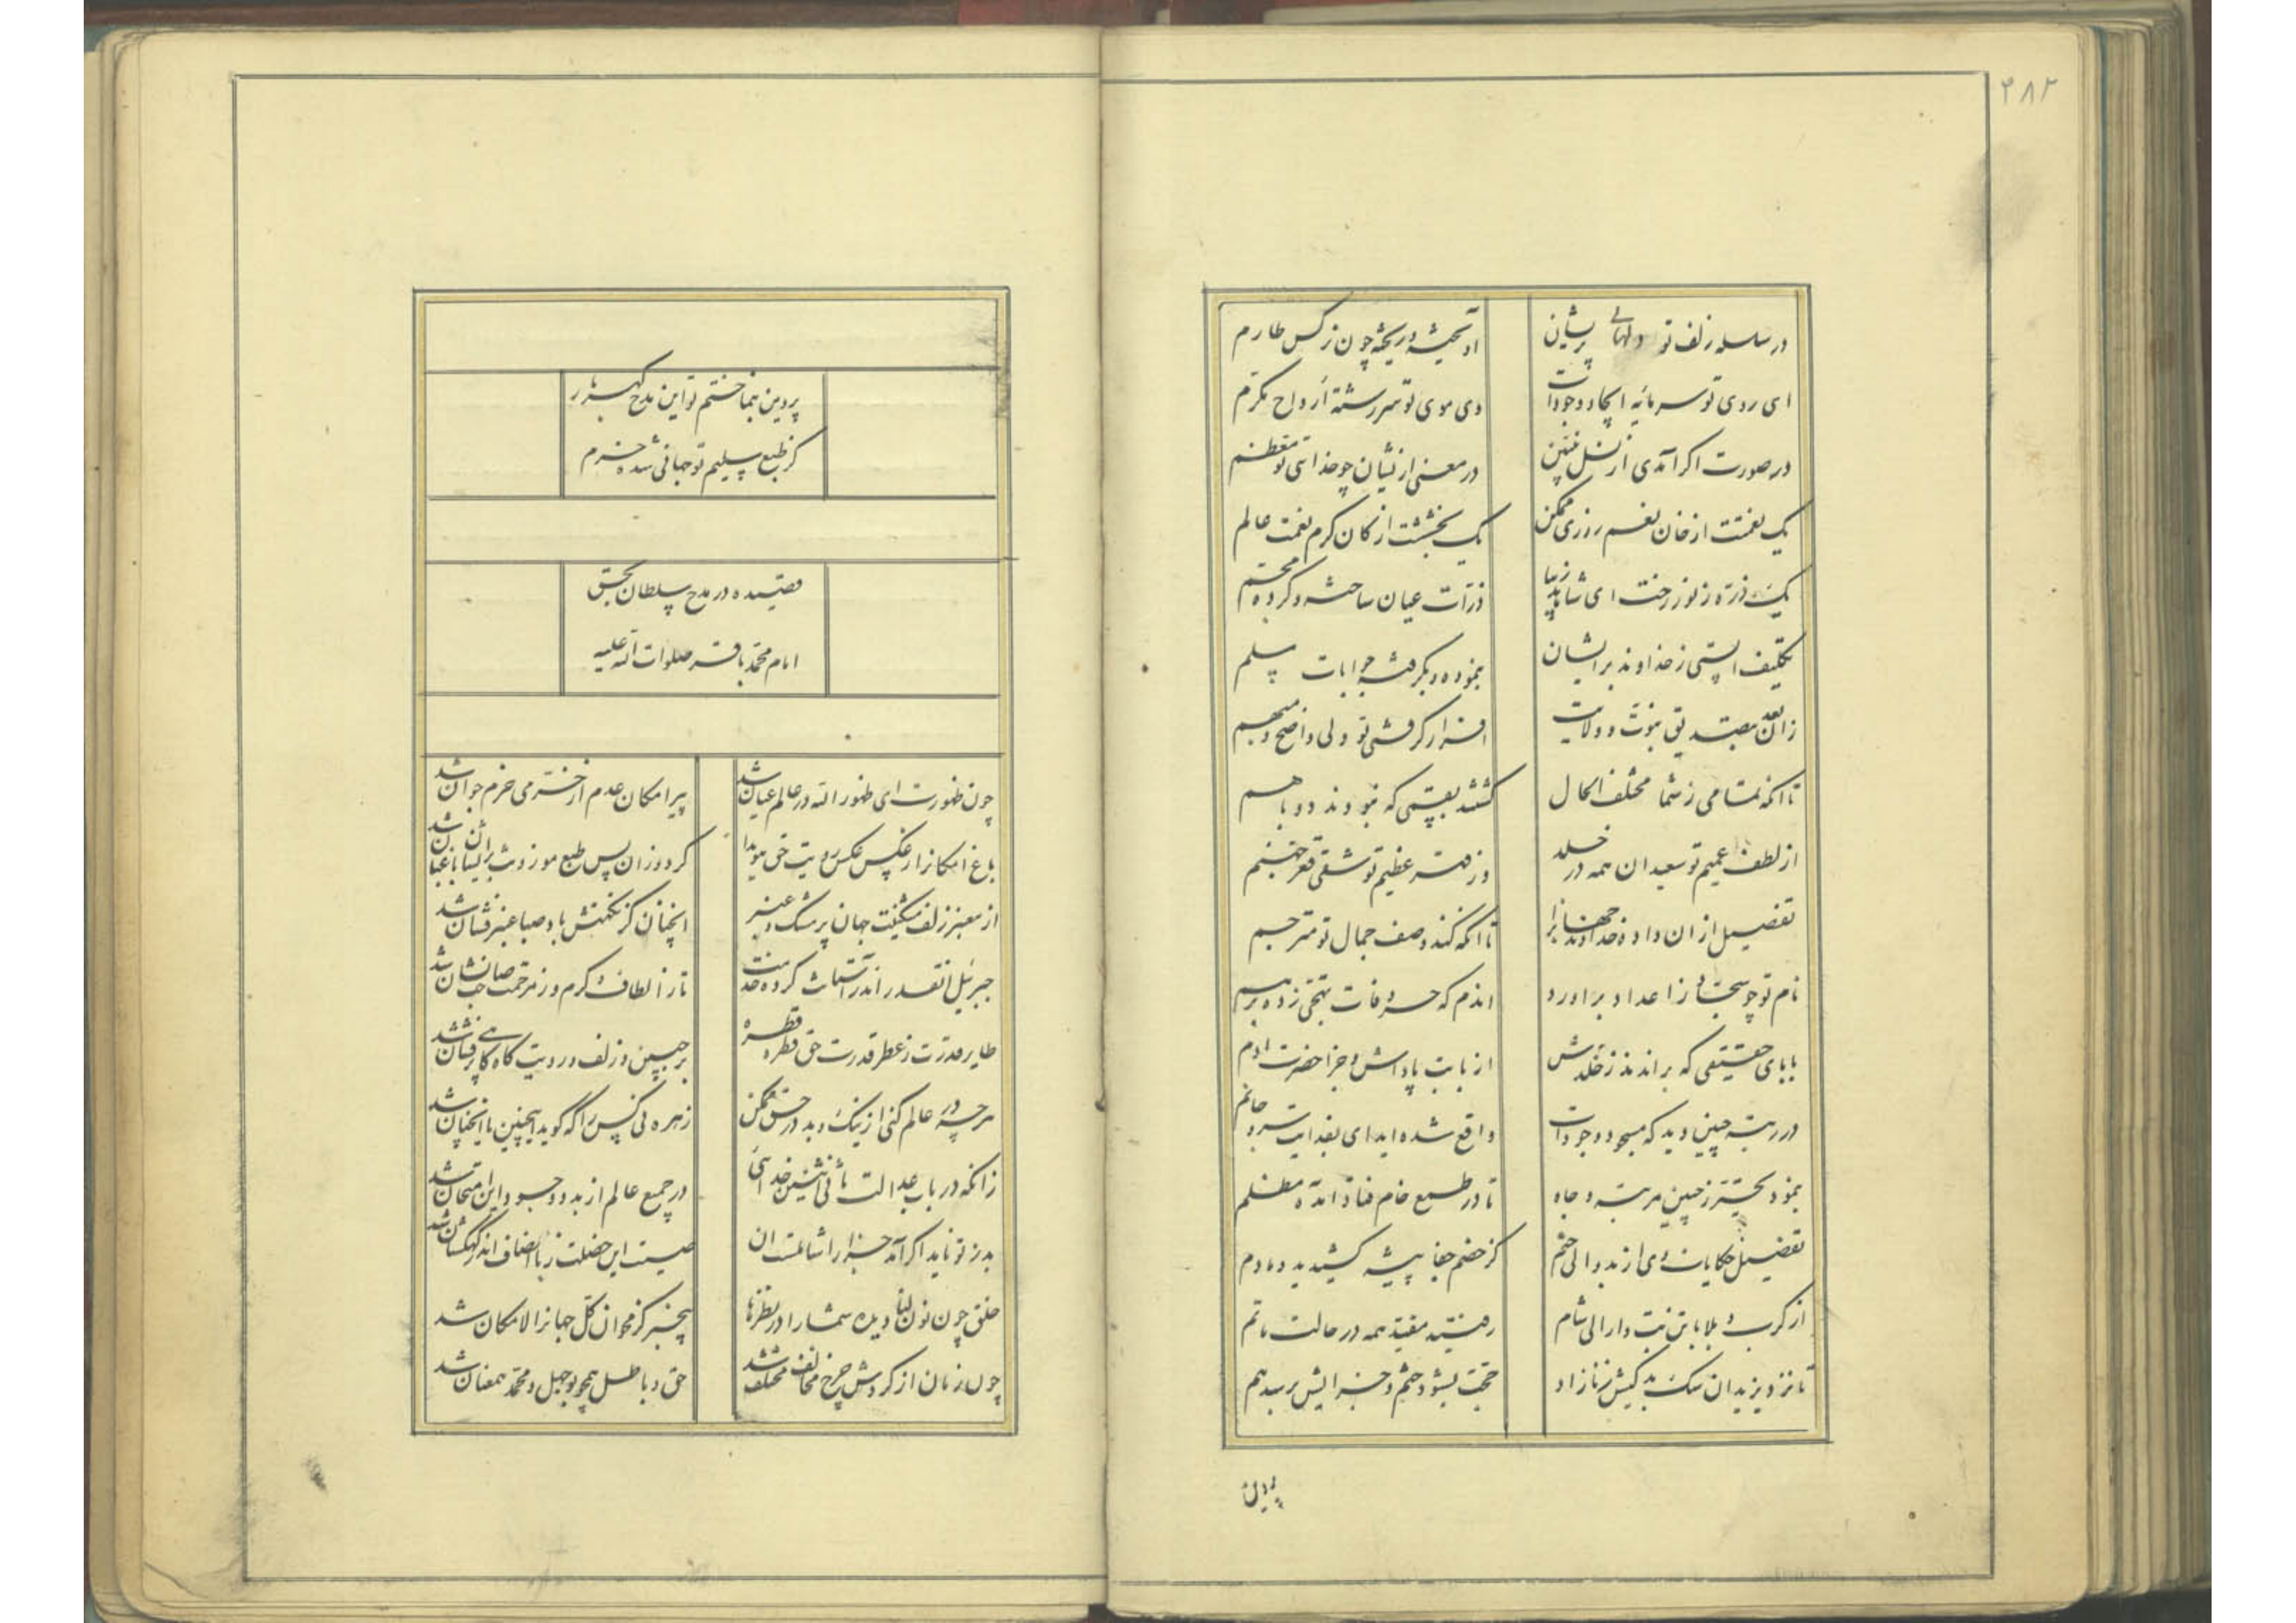 ۳۸۲
در سلسله زلف تو دلهای پریشان
آویخته و ریخته چون نرگس طارم
ای روی تو سرمایه ایجاد وجودات
وی موی تو سررشته ارواح مکرم
در صورت اگر آمدی از نسل نبیین
در معنی ازیشان چو خدائی تو معظم
یک نعمتت از خان نعم روزی ممکن
یک بخششت از کان کرم نعمت عالم
یک ذره ز نور رخت ای شاهد زیبا
ذرات عیان ساخته و کرده مجسم
تکلیف الستی ز خداوند بر ایشان
بنموده و بگرفته جوابات مسلم
زان بعد بتصدیق نبوت و ولایت
اقرار گرفتی تو ولی واضح و مبهم
تا آنکه تمامی ز شما مختلف الحال
گشتند بقسمی که نبودند دو با هم
از لطف عمیم تو سعیدان همه در خلد
وز قهر عظیم تو شقی قعر جهنم
تفصیل از ان داده خداوند جهانرا
تا آنکه کند وصف جمال تو مترجم
نام تو چو سبحان ز اعداد براورد
اندم که حروفات تهجی زده برهم
بابای حقیقی که براندند ز خلدش
از بابت پاداش و جزا حضرت ادم
در رتبه چنین دید که مسجود وجودات
واقع شده ایدای بفدایت سر و جانم
بنمود تحیر ز چنین مرتبه و جاه
تا در طمع خام فتاد آمده مظلم
تفصیل حکایات وی از بدو الی ختم
کز خصم جفا پیشه کشیدید دمادم
از کرب و بلا با تن تب دار الی شام
رفتید مقید همه در حالت ماتم
تا نزد یزیدان سگ بد کیش زنازاد
حجت بشود ختم و جزایش برسد هم
پروین
پروین بنما ختم تو این مدح گهربار
کز طبع سلیم تو جهانی شده خرم
قصیده در مدح سلطان بحق
امام محمد باقر صلوات الله علیه
چون ظهورت ای ظهور الله در عالم عیان شد
پیر امکان عدم از خرمی خرم جوان شد
باغ امکانرا ز عکس عکس رویت حق هویدا
کرد وزان پس طبع موزونت بر ایشان باغبان شد
از معنبر زلف مشکینت جهان پر مشک و عنبر
انچنان کز نکهتش باد صبا عنبر فشان شد
جبرئیل انقدر اندر آستانت کرده خدمت
تا ز الطاف و کرم وز مرحمت صاحب نشان شد
طایر قدرت ز عطر قدرت حق قطره قطره
بر جبین و زلف و رویت گاه گاهی پرفشان شد
هر چه در عالم کنی از نیک و بد در حق ممکن
زهره کی کس را که گوید اینچنین یا انچنان شد
زانکه در باب عدالت ثانی اثنین خدائی
در جمیع عالم از بدو وجود و این امتحان شد
بد ز تو ناید اگر آمد جزا را شاءمت ان
صیت این خصلت ز با انصاف اندر کهکشان شد
خلق چون نون لنا دیده شما را در نظرها
بیخبر کز محو ان کل جهانرا لامکان شد
چون زمان از گردش چرخ مخالف مختلف شد
حق و باطل همچو بوجهل و محمد همعنان شد